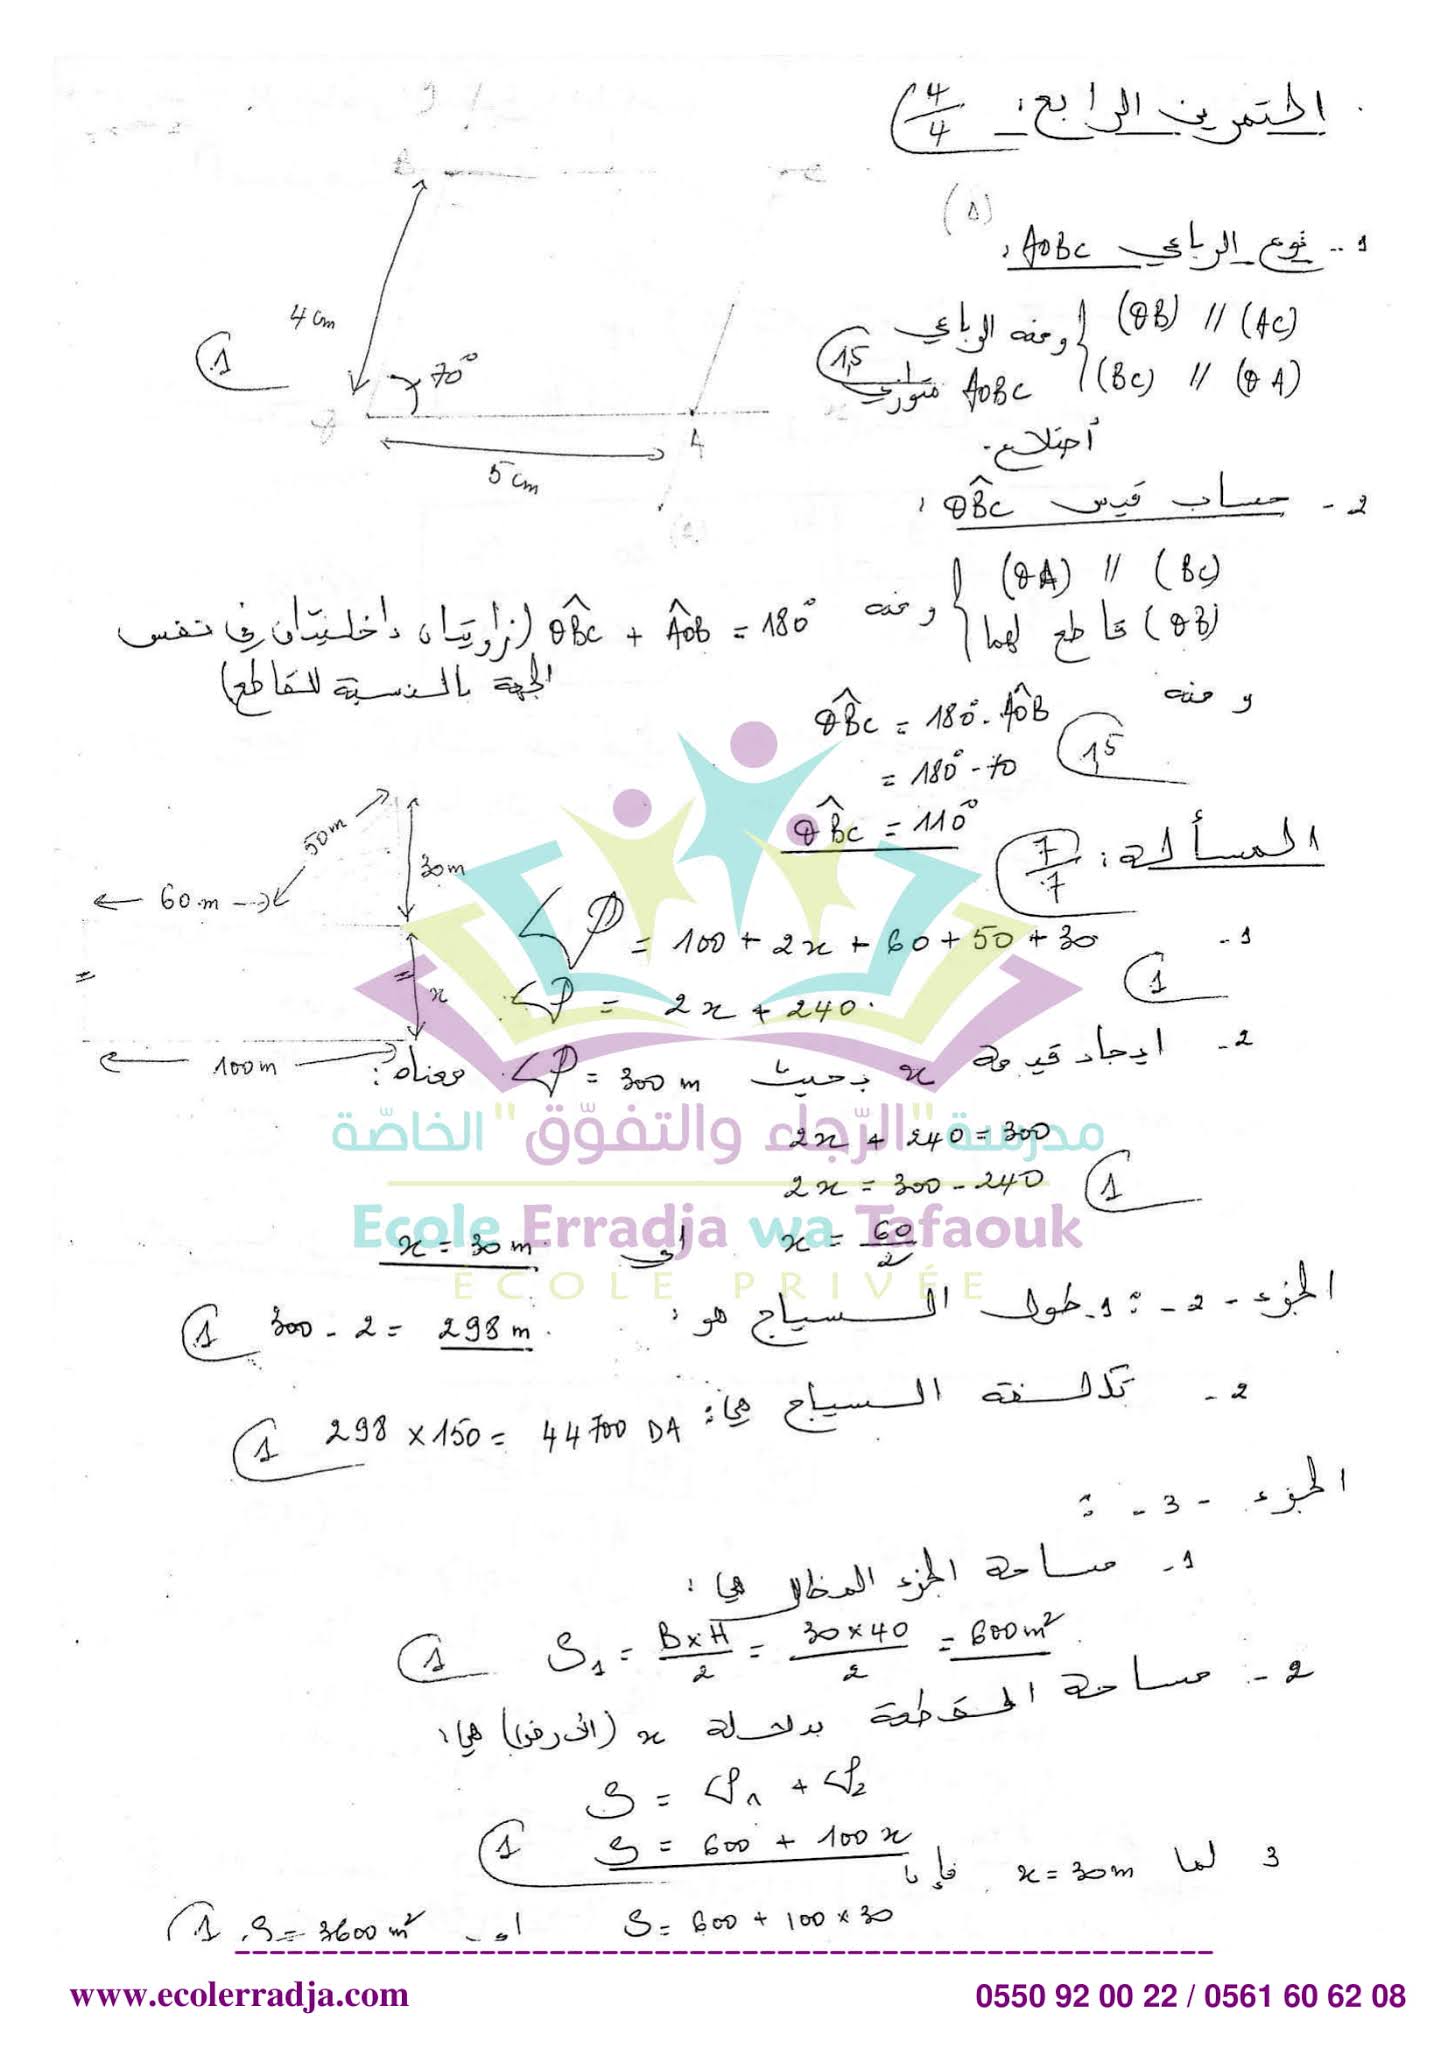 التمرين الرابع: 4/4
(Δ)
1.. نوع الرباعي AOBC:
(OB) // (AC)
(BC) // (OA)
ومنه الرباعي
AOBC متوازي
أضلاع.
1,5
B
4 cm
1
70°
O
A
5 cm
2- حساب قيس OB̂C:
(OA) // (BC)
(OB) قاطع لهما
ومنه OB̂C + AÔB = 180° (زاويتان داخليتان في نفس
الجهة بالنسبة للقاطع)
ومنه
OB̂C = 180° - AÔB
= 180° - 70
1,5
OB̂C = 110°
المسألة: 7/7
50m
30m
60m
=
=
x
100m
1- P = 100 + 2x + 60 + 50 + 30
1
P = 2x + 240.
2- ايجاد قيمة x بحيث P = 300 m معناه:
2x + 240 = 300
2x = 300 - 240
1
x = 60/2 اي x = 30 m
الجزء - 2 - : 1. طول السياج هو:
300 - 2 = 298 m.
1
2- تكلفة السياج هي:
298 × 150 = 44700 DA
1
الجزء - 3 - :
1- مساحة الجزء المظلل هي:
S₁ = B×H/2 = 30×40/2 = 600m²
1
2- مساحة القطعة بدلالة x (الأرض) هي:
S = S₁ + S₂
S = 600 + 100x
1
3 لما x = 30m فإن
S = 600 + 100 × 30
اي S = 3600 m²
1
مدرسة "الرّجاء والتفوّق" الخاصّة
Ecole Erradja wa Tafaouk
ÉCOLE PRIVÉE
www.ecolerradja.com
0550 92 00 22 / 0561 60 62 08